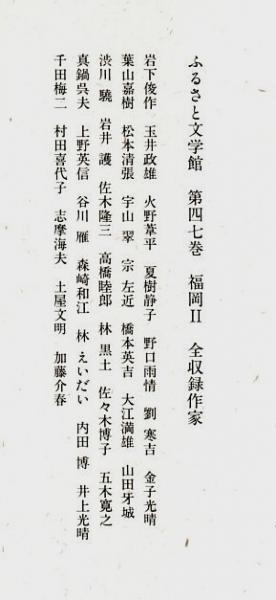 ふるさと文学館　第四七巻　福岡II　全収録作家
岩下俊作　玉井政雄　火野葦平　夏樹静子　野口雨情　劉　寒吉　金子光晴
葉山嘉樹　松本清張　宇山　翠　宗　左近　橋本英吉　大江満雄　山田牙城
渋川　驍　岩井　護　佐木隆三　高橋睦郎　林　黒土　佐々木博子　五木寛之
真鍋呉夫　上野英信　谷川　雁　森崎和江　林　えいだい　内田　博　井上光晴
千田梅二　村田喜代子　志摩海夫　土屋文明　加藤介春